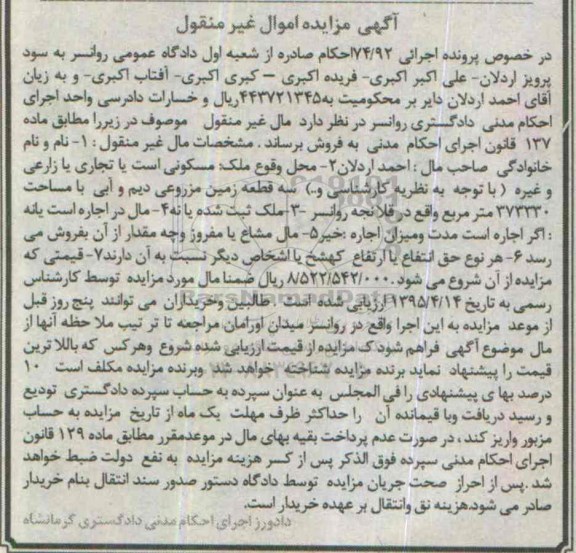 آگهی مزایده اموال غیر منقول
در خصوص پرونده اجرائی ۷۴/۹۲احکام صادره از شعبه اول دادگاه عمومی روانسر به سود
پرویز اردلان- علی اکبر اکبری- فریده اکبری – کبری اکبری- آفتاب اکبری- و به زیان
آقای احمد اردلان دایر بر محکومیت به۴۴۳۷۲۱۳۴۵ریال و خسارات دادرسی واحد اجرای
احکام مدنی دادگستری روانسر در نظر دارد مال غیر منقول موصوف در زیررا مطابق ماده
۱۳۷ قانون اجرای احکام مدنی به فروش برساند . مشخصات مال غیر منقول : ۱- نام و نام
خانوادگی صاحب مال : احمد اردلان۲- محل وقوع ملک: مسکونی است یا تجاری یا زارعی
و غیره ( با توجه به نظریه کارشناسی و..) سه قطعه زمین مزروعی دیم و آبی با مساحت
۳۷۳۳۳۰ متر مربع واقع در قلا نجه روانسر -۳-ملک ثبت شده یا نه۴- مال در اجاره است یانه
: اگر اجاره است مدت ومیزان اجاره :خیر۵- مال مشاع یا مفروز وچه مقدار از آن بفروش می
رسد ۶- هر نوع حق انتفاع یا ارتفاع کهشخ یا اشخاص دیگر نسبت به آن دارند۷- قیمتی که
مزایده از آن شروع می شود .۸/۵۲۲/۵۴۲/۰۰۰ ریال ضمنا مال مورد مزایده توسط کارشناس
رسمی به تاریخ ۱۳۹۵/۴/۱۴ارزیابی شده است . طالبین وخریداران می توانند پنج روز قبل
از موعد مزایده به این اجرا واقع در روانسر میدان اورامان مراجعه تا تر تیب ملا حظه آنها از
مال موضوع آگهی فراهم شود ک مزایده از قیمت ارزیابی شده شروع وهرکس که باللا ترین
قیمت را پیشنهاد نماید برنده مزایده شناخته خواهد شد وبرنده مزایده مکلف است ۱۰
درصد بها ی پیشنهادی را فی المجلس به عنوان سپرده به حساب سپرده دادگستری تودیع
و رسید دریافت وبا قیمانده آن را حداکثر ظرف مهلت یک ماه از تاریخ مزایده به حساب
مزبور واریز کند ، در صورت عدم پرداخت بقیه بهای مال در موعدمقرر مطابق ماده ۱۲۹ قانون
اجرای احکام مدنی سپرده فوق الذکر پس از کسر هزینه مزایده به نفع دولت ضبط خواهد
شد .پس از احراز صحت جریان مزایده توسط دادگاه دستور صدور سند انتقال بنام خریدار
صادر می شود.هزینه نق وانتقال بر عهده خریدار است.
دادورز اجرای احکام مدنی دادگستری کرمانشاه